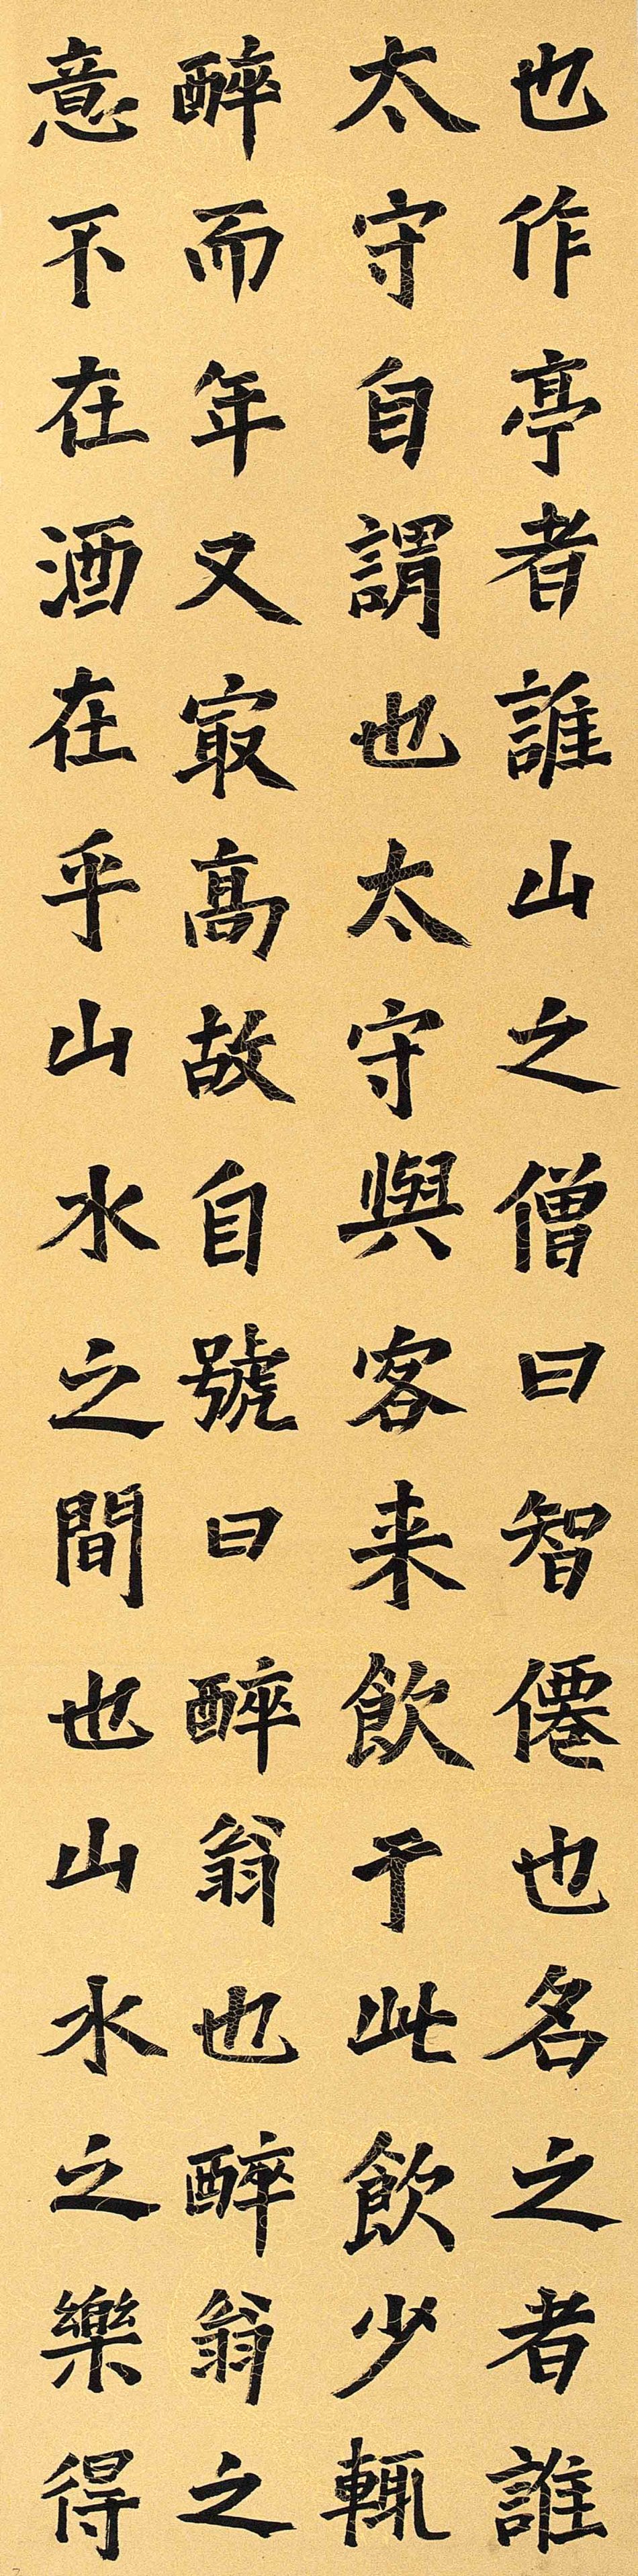 也作亭者誰山之僧曰智僊也名之者誰
太守自謂也太守與客来飲于此飲少輒
醉而年又㝡高故自號曰醉翁也醉翁之
意不在酒在乎山水之間也山水之樂得